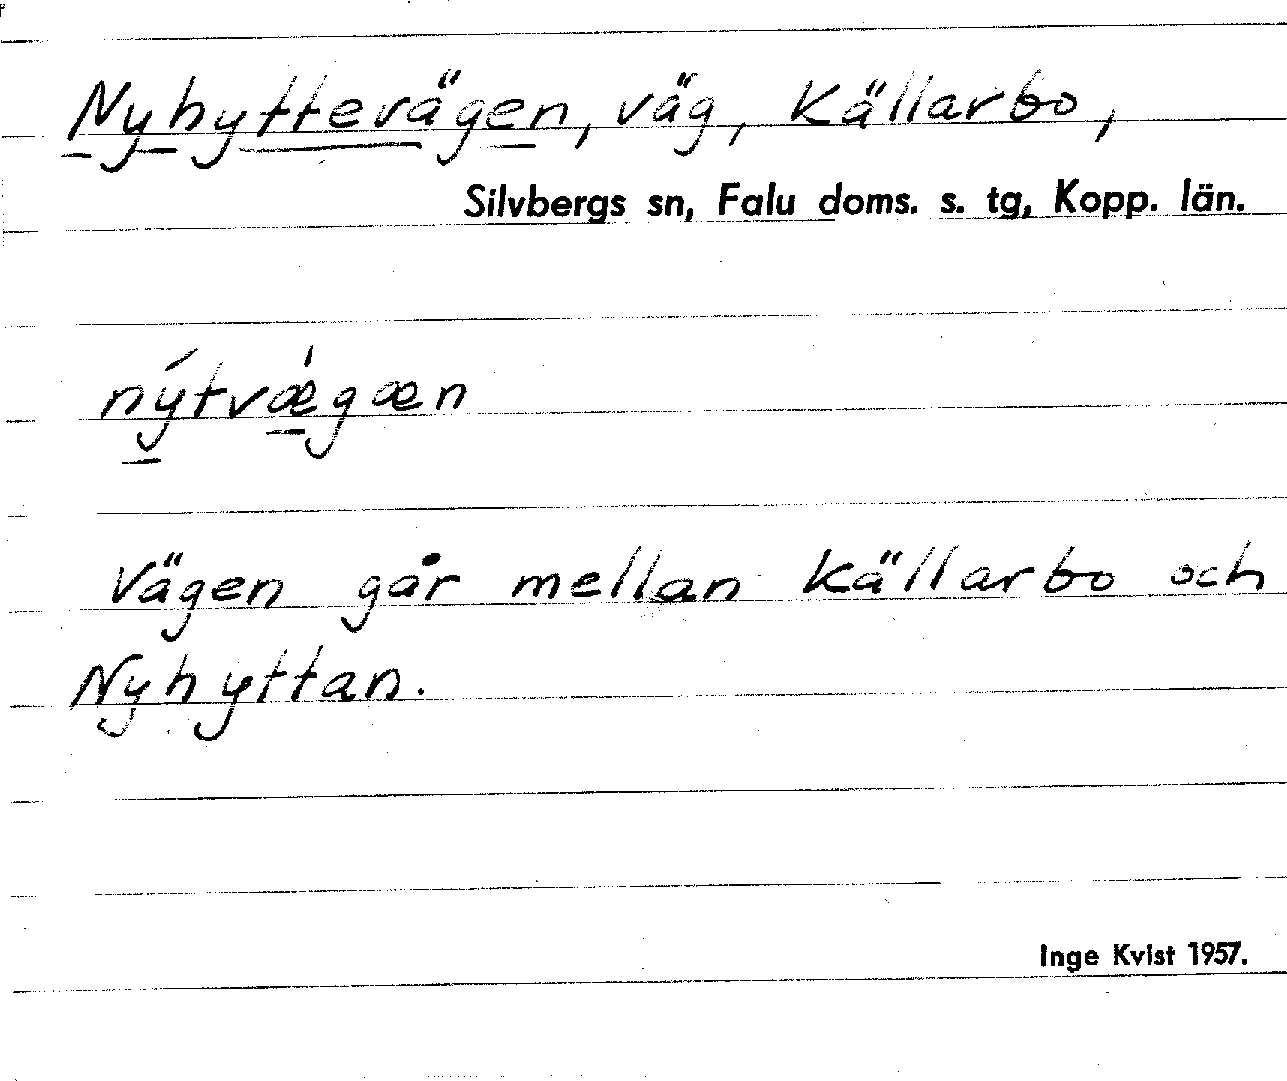 Nyhyttevägen, väg, Källarbo,
Silvbergs sn, Falu doms. s. tg, Kopp. län.
nýtvǽgæn
Vägen går mellan Källarbo och
Nyhyttan.
Inge Kvist 1957.